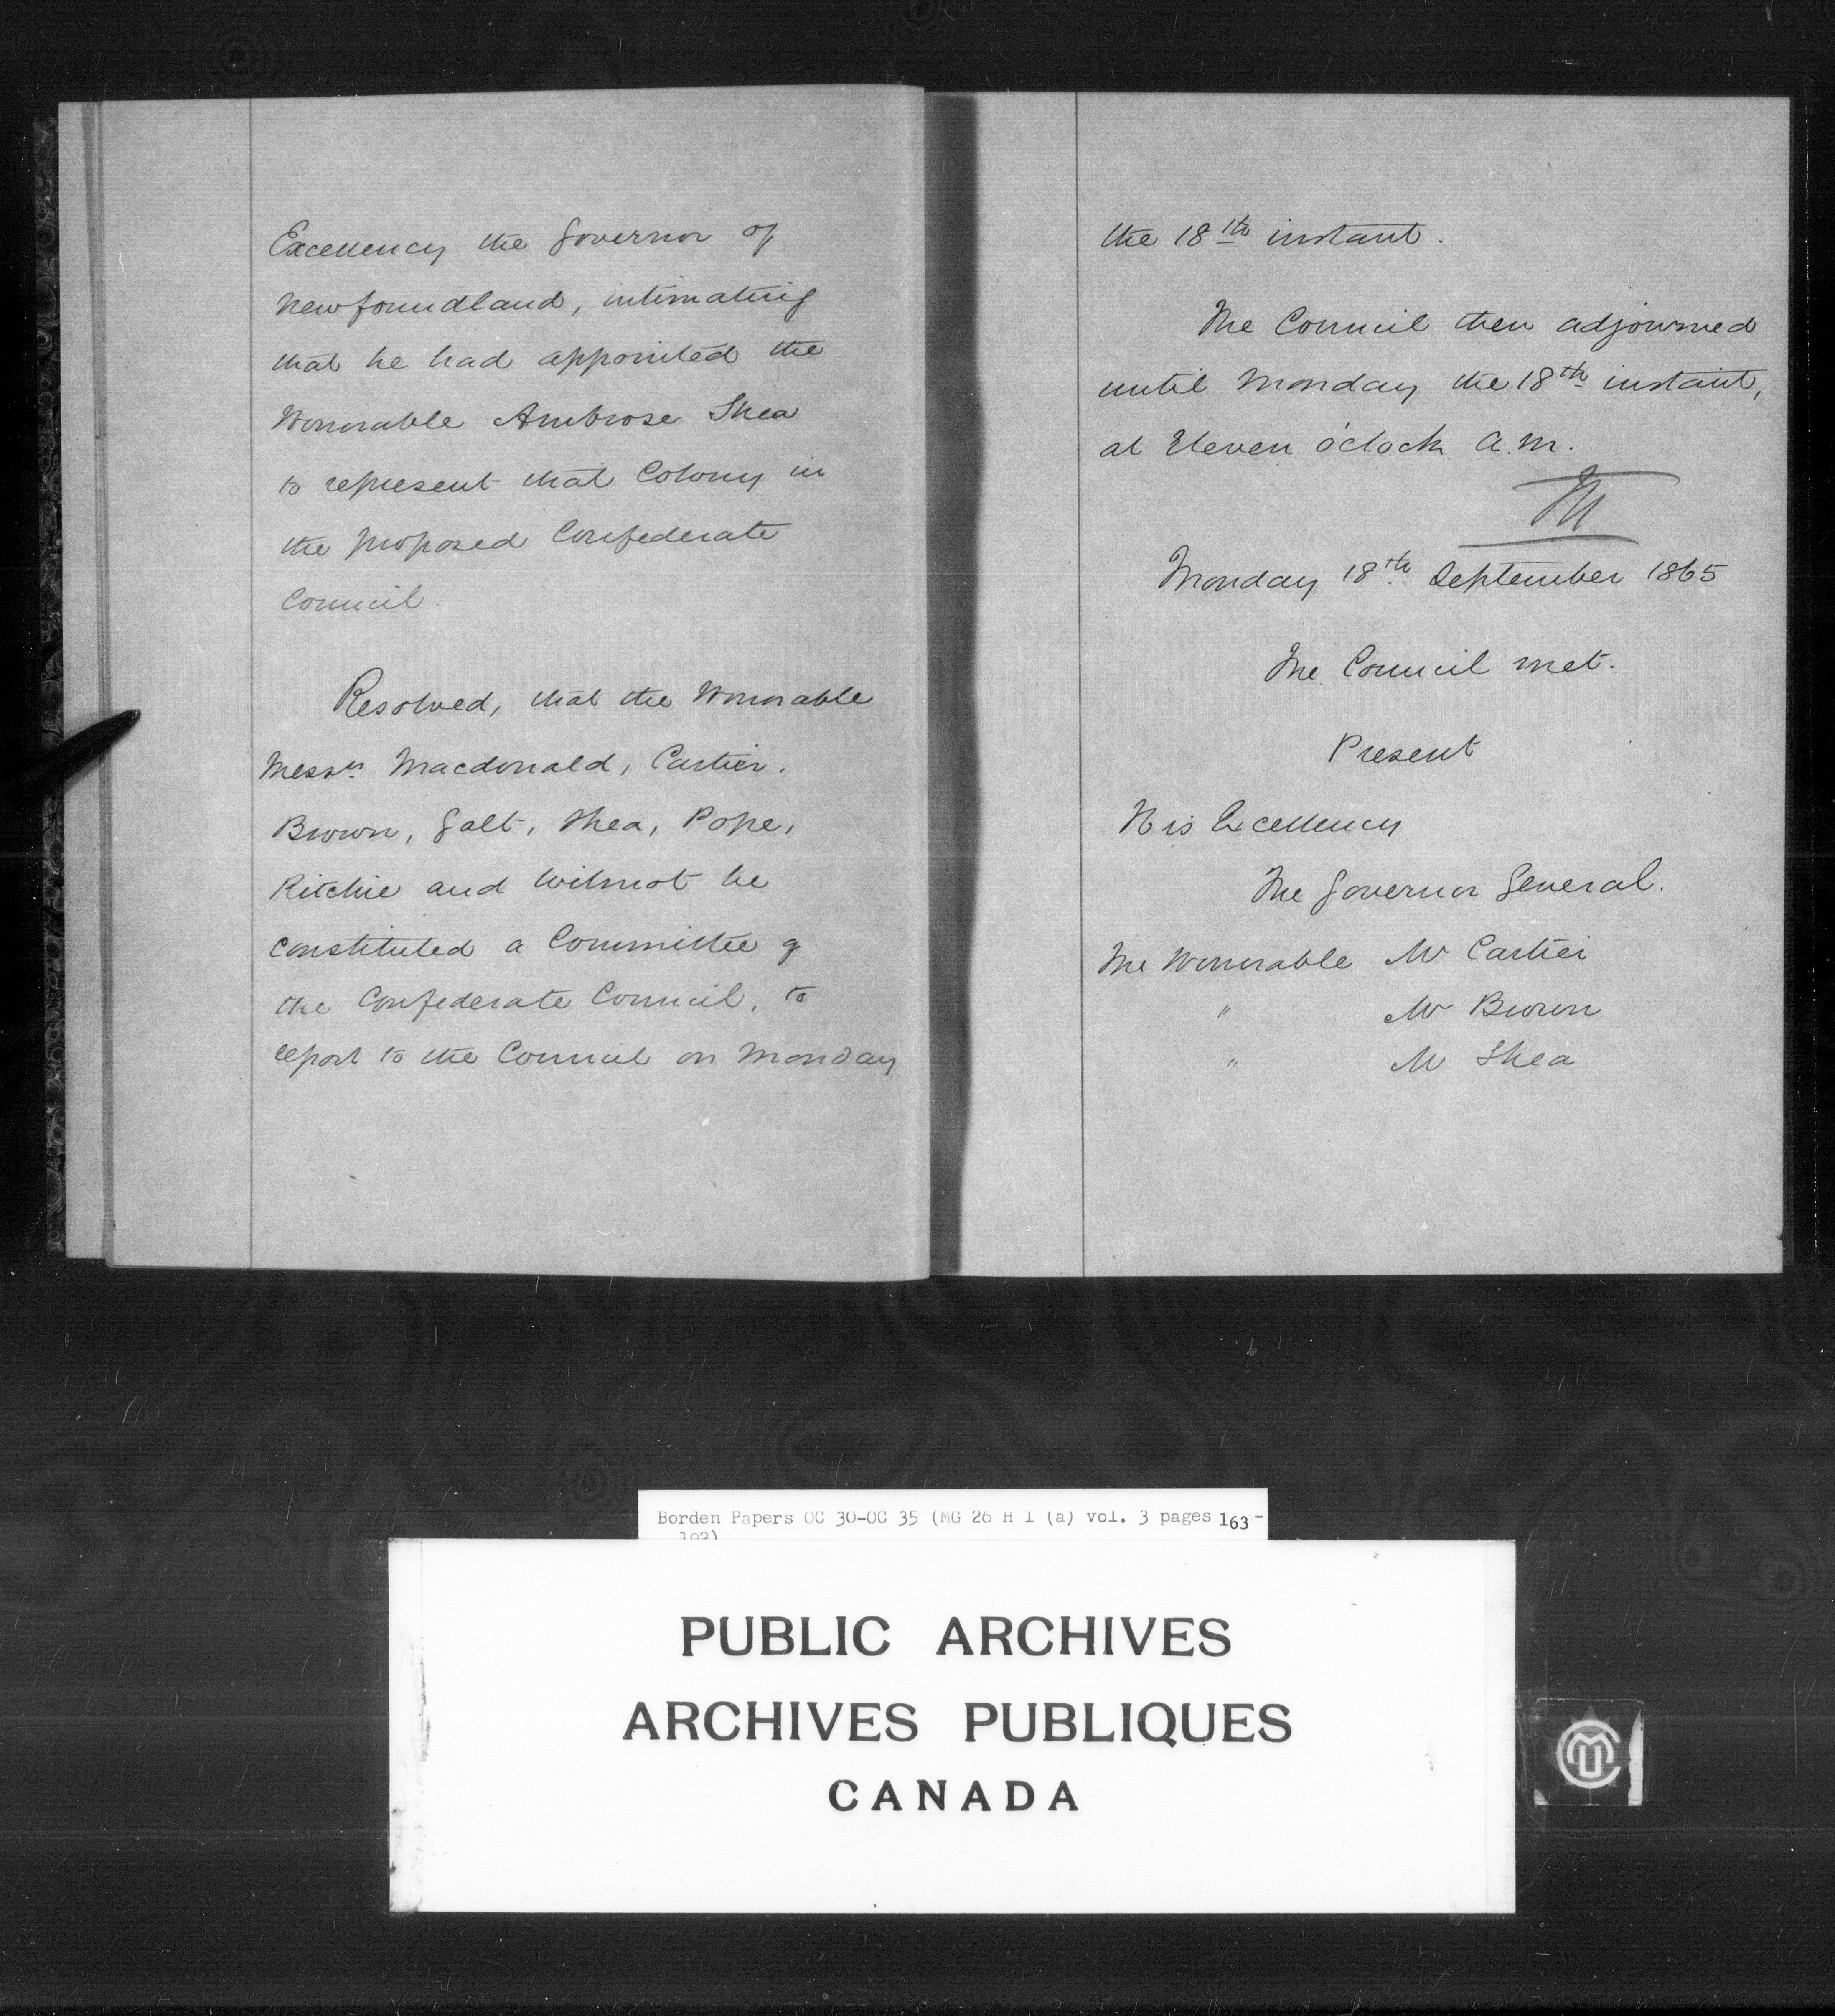 Excellency the Governor of
Newfoundland, intimating
that he had appointed the
Honorable Ambrose Shea
to represent that Colony in
the proposed Confederate
Council.
Resolved, that the Honorable
Messrs. Macdonald, Cartier,
Brown, Galt, Shea, Pope,
Ritchie and Wilmot be
constituted a Committee of
the Confederate Council, to
report to the Council on Monday
the 18th instant.
The Council then adjourned
until Monday the 18th instant,
at Eleven o'clock A.M.
M
Monday 18th September 1865
The Council met.
Present
His Excellency
The Governor General.
The Honorable Mr Cartier
" Mr Brown
" Mr Shea
Borden Papers OC 30-OC 35 (MG 26 H 1 (a) vol. 3 pages 163-
PUBLIC ARCHIVES
ARCHIVES PUBLIQUES
CANADA